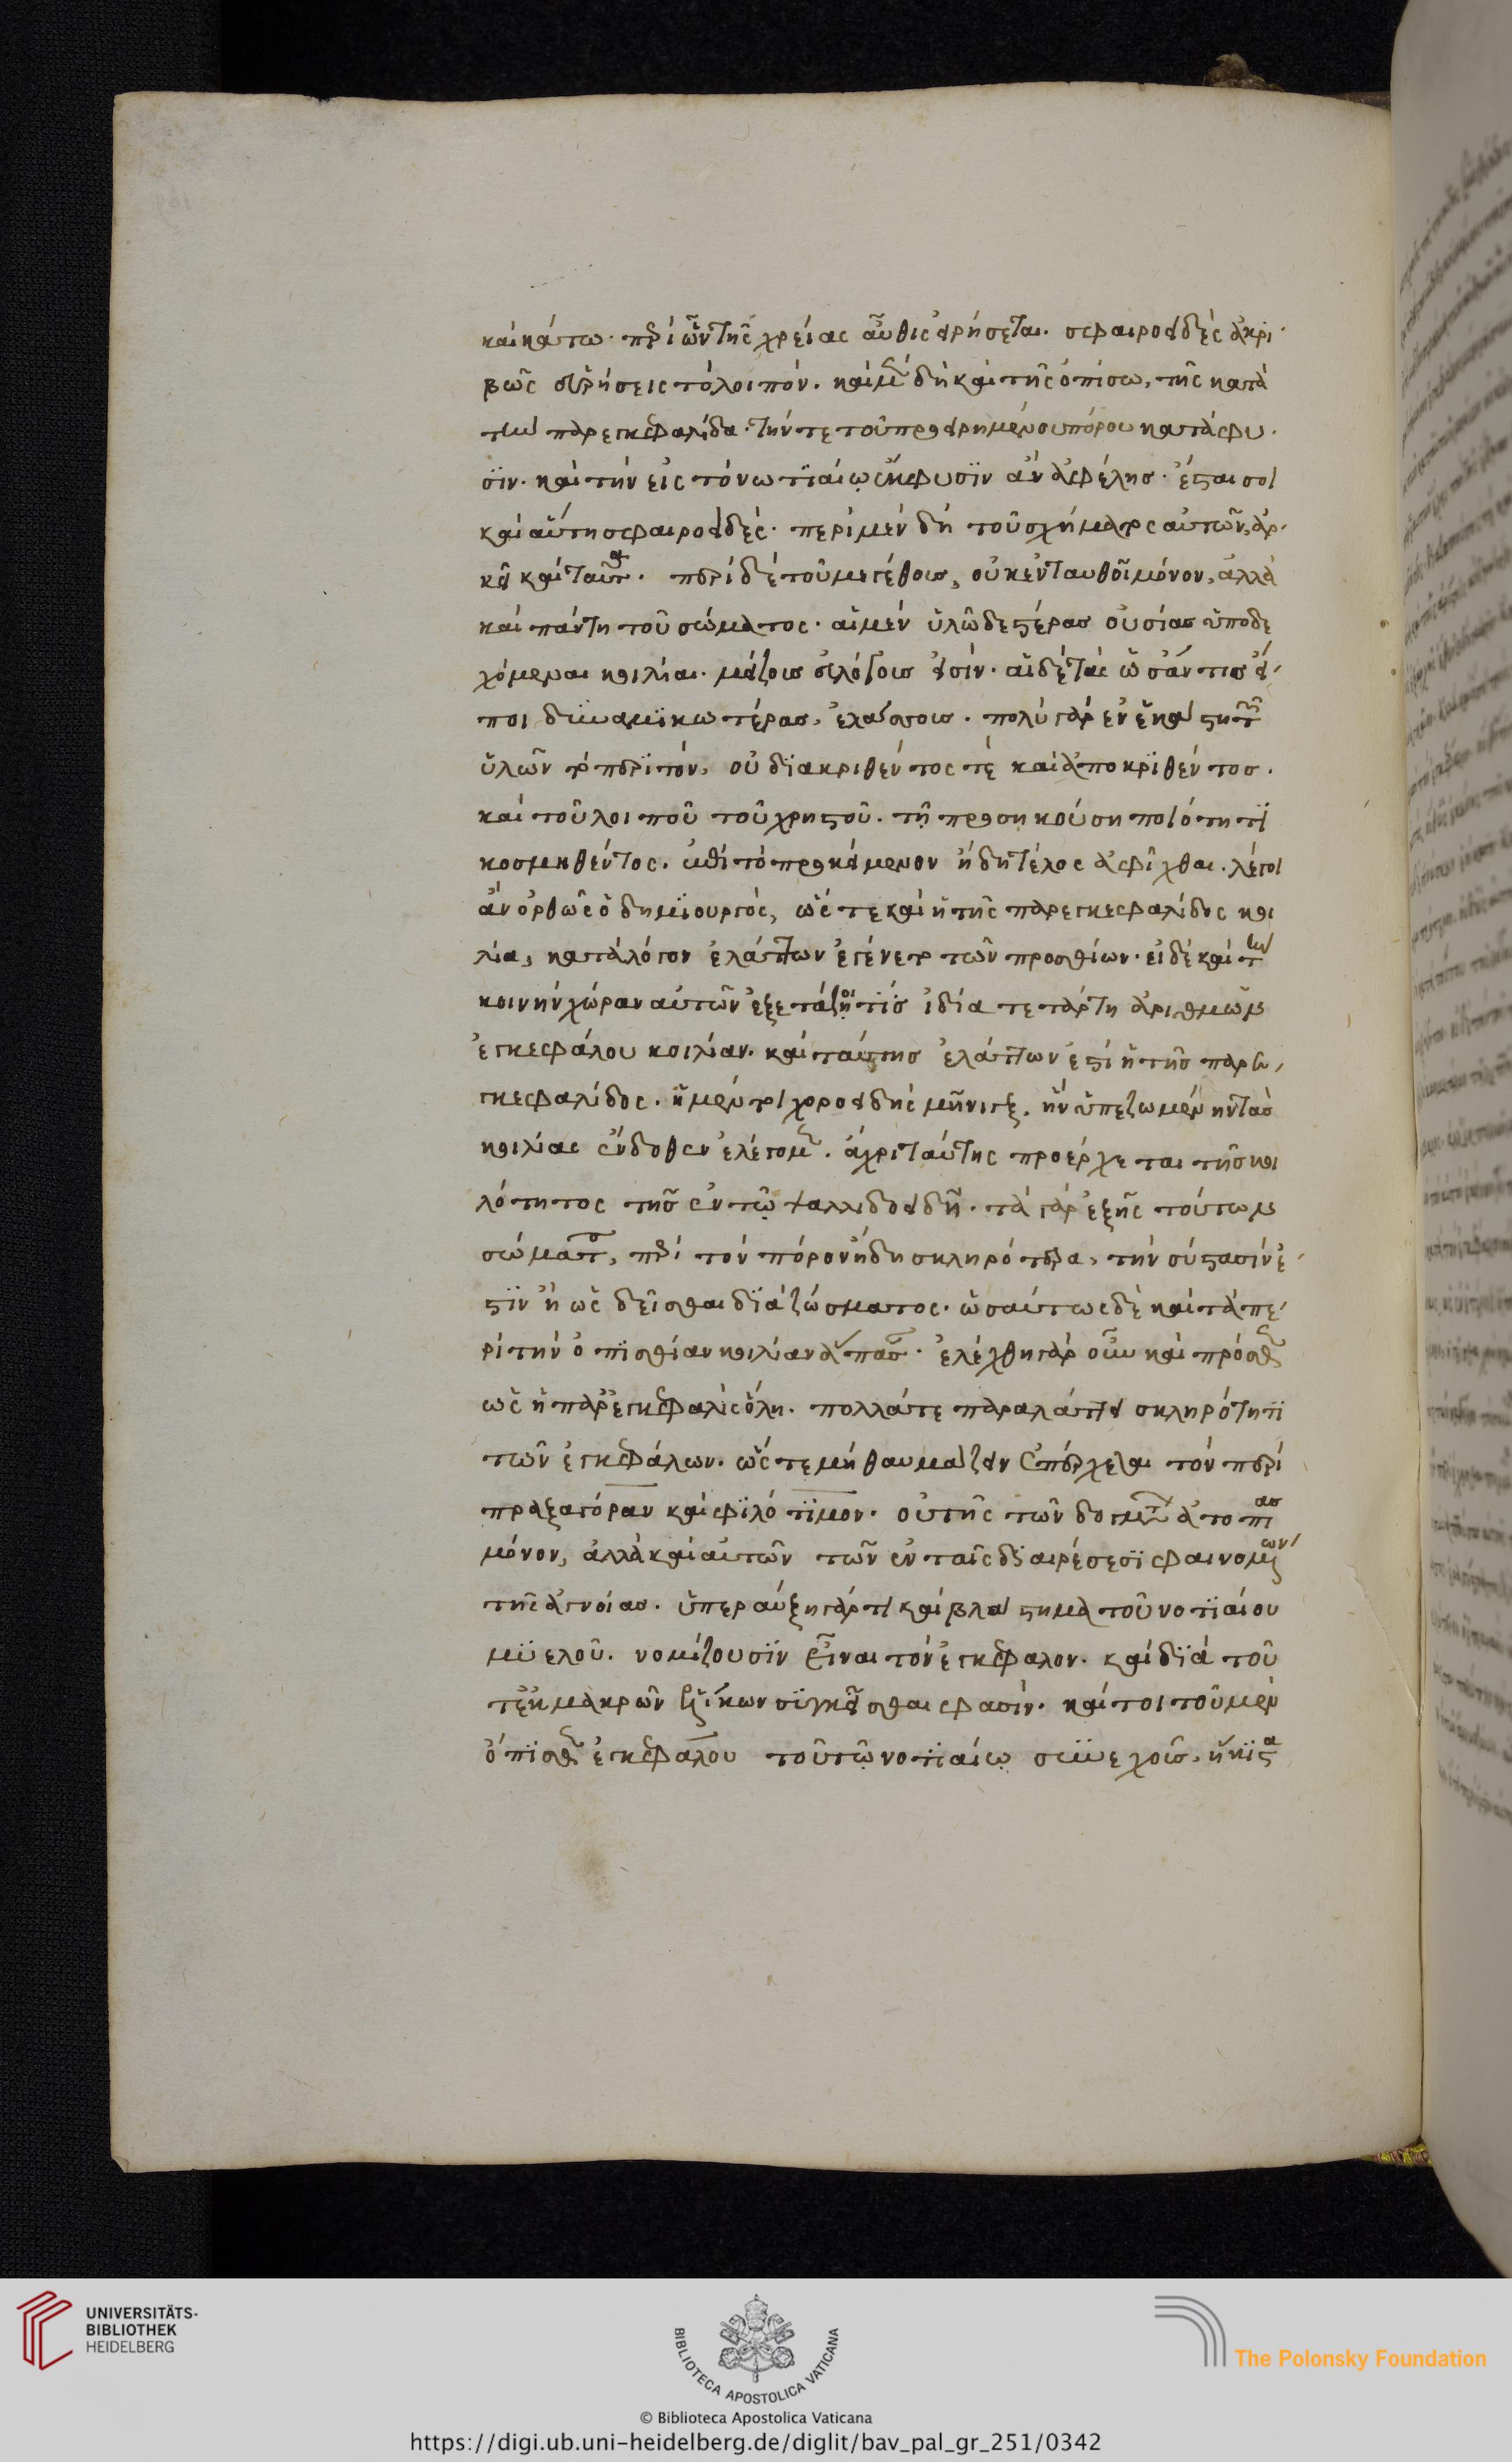 καὶ κάτω· περὶ ὧν τῆς χρείας αὖθις εἰρήσεται. σφαιροειδὲς ἀκρι
βῶς εὑρήσεις τὸ λοιπόν. καὶ μὲν δὴ καὶ τῆς ὀπίσω, τῆς κατὰ
τὴν παρεγκεφαλίδα. τήν τε τοῦ προειρημένου πόρου κατάφυ
σιν. καὶ τὴν εἰς τὸ νωτιαίῳ ἔκφυσιν ἂν ἀφέλῃς. ἔσται σοι
καὶ αὕτη σφαιροειδές. περὶ μὲν δὴ τοῦ σχήματος αὐτῶν, ἀρ
κεῖ καὶ ταῦτα. περὶ δὲ τοῦ μεγέθους, οὐκ ἐνταυθοῖ μόνον, ἀλλὰ
καὶ πάντη τοῦ σώματος. αἱ μὲν ὑλωδεστέρας οὐσίας ὑποδε
χόμεναι κοιλίαι. μείζους εὐλόγως εἰσίν. αἱ δὲ τὰς ὡς ἄν τις εἴ
ποι δυναμικωτέρας, ἐλάσσους. πολὺ γὰρ ἐν ἑκάστῃ τῶν
ὑλῶν τὸ περιττόν, οὗ διακριθέντος τὲ καὶ ἀποκριθέντος.
καὶ τοῦ λοιποῦ τοῦ χρηστοῦ. τῇ προσηκούσῃ ποιότητι
κοσμηθέντος. ἐπὶ τὸ προκείμενον ἤδη τέλος ἀφῖχθαι. λέγοι
ἂν ὀρθῶς ὁ δημιουργός, ὥς τε καὶ ἡ τῆς παρεγκεφαλίδος κοι
λία, κατὰ λόγον ἐλάττων ἐγένετο τῶν προσθίων. εἰ δὲ καὶ τὴν
κοινὴν χώραν αὐτῶν ἐξετάζοι τίς ἰδίᾳ τετάρτῃ ἀριθμῶν
ἐγκεφάλου κοιλίαν. καὶ ταύτης ἐλάττων ἐστὶ ἡ τῆς παρε
γκεφαλίδος. ἡ μὲν τοι χοροειδὴς μῆνιγξ. ἣν ὑπεζωμένην τὰς
κοιλίας ἔνδοθεν ἐλέγομεν. ἄχρι ταύτης προέρχεται τῆς κοι
λότητος τῆς ἐν τῷ γαλλιδοειδῆ. τὰ γὰρ ἑξῆς τούτων
σώματος, περὶ τὸν πόρον ἤδη σκληρότερα, τὴν σύστασιν ἐ
στιν ἢ ὡς δεῖσθαι διαζώσματος. ὡσαύτως δὲ καὶ τὰ πε
ρὶ τὴν ὀπισθίαν κοιλίαν ἅπασαν. ἐλέχθη γὰρ οὖν καὶ πρόσθεν
ὡς ἡ παρεγκεφαλὶς ὅλη. πολλά τε παραλάττει σκληρότητι
τῶν ἐγκεφάλων. ὥς τε μὴ θαυμάζειν ἐπέρχεσθαι τὸν περὶ
πραξαγόραν καὶ φιλότιμον. οὐ τῆς τῶν δογμάτων ἀτοπίας
μόνον, ἀλλὰ καὶ αὐτῶν τῶν ἐν ταῖς διαιρέσεσι φαινομένων
τῆς ἀγνοίας. ὑπεραύξη γάρ τι καὶ βλάστημα τοῦ νοτιαίου
μυελοῦ. νομίζουσιν εἶναι τὸν ἐγκέφαλον. καὶ διὰ τοῦ
τ᾽ ἐκ μακρῶν ἑλίκων συγκεῖσθαι φασίν. καί τοι τοῦ μὲν
ὄπισθεν ἐγκεφάλου τοῦ τῷ νοτιαίῳ συνεχοῦς. ἥκιστα
UNIVERSITÄTS-
BIBLIOTHEK
HEIDELBERG
BIBLIOTECA APOSTOLICA VATICANA
The Polonsky Foundation
© Biblioteca Apostolica Vaticana
https://digi.ub.uni-heidelberg.de/diglit/bav_pal_gr_251/0342